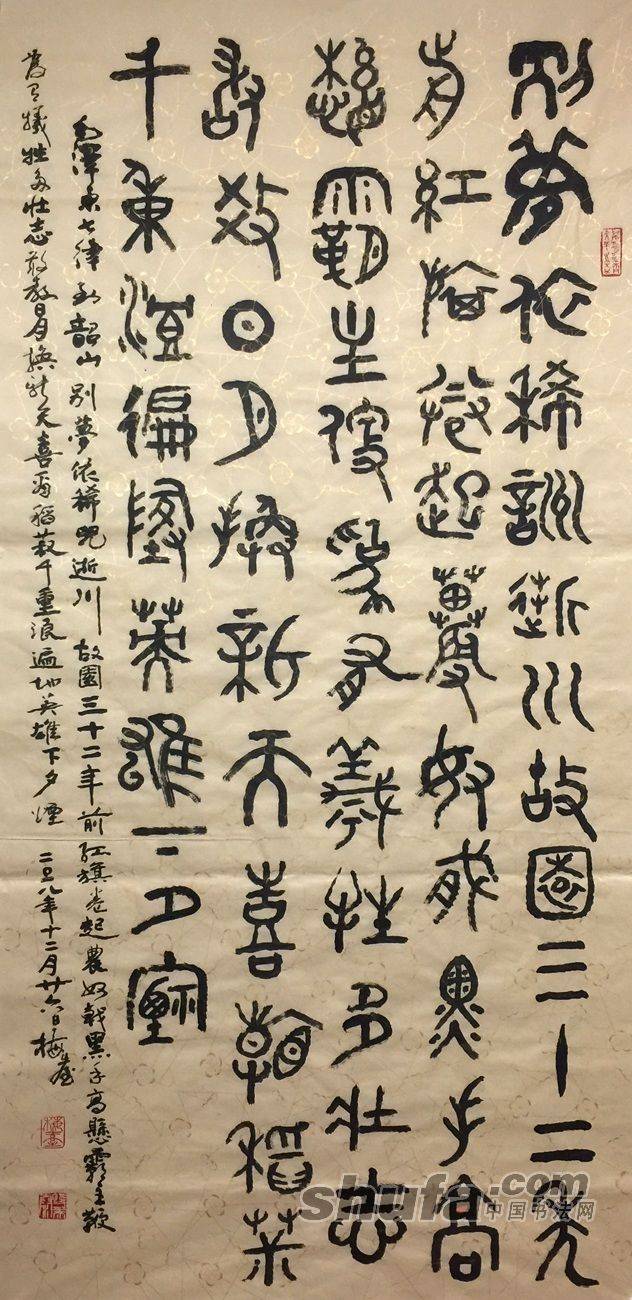 別夢依稀詶逝川故園三十二年
前紅旗卷起農奴戟黑手高
懸霸主鞭為有犧牲多壯志
敢教日月換新天喜看稻菽
千重浪遍地英雄下夕煙
毛澤東七律到韶山 别夢依稀咒逝川 故園三十二年前紅旗卷起農奴戟黑手高懸霸主鞭
為有犧牲多壯志敢教日月換新天喜看稻菽千重浪遍地英雄下夕煙 二〇一八年十二月廿六日梅
shufa.com
中国书法网